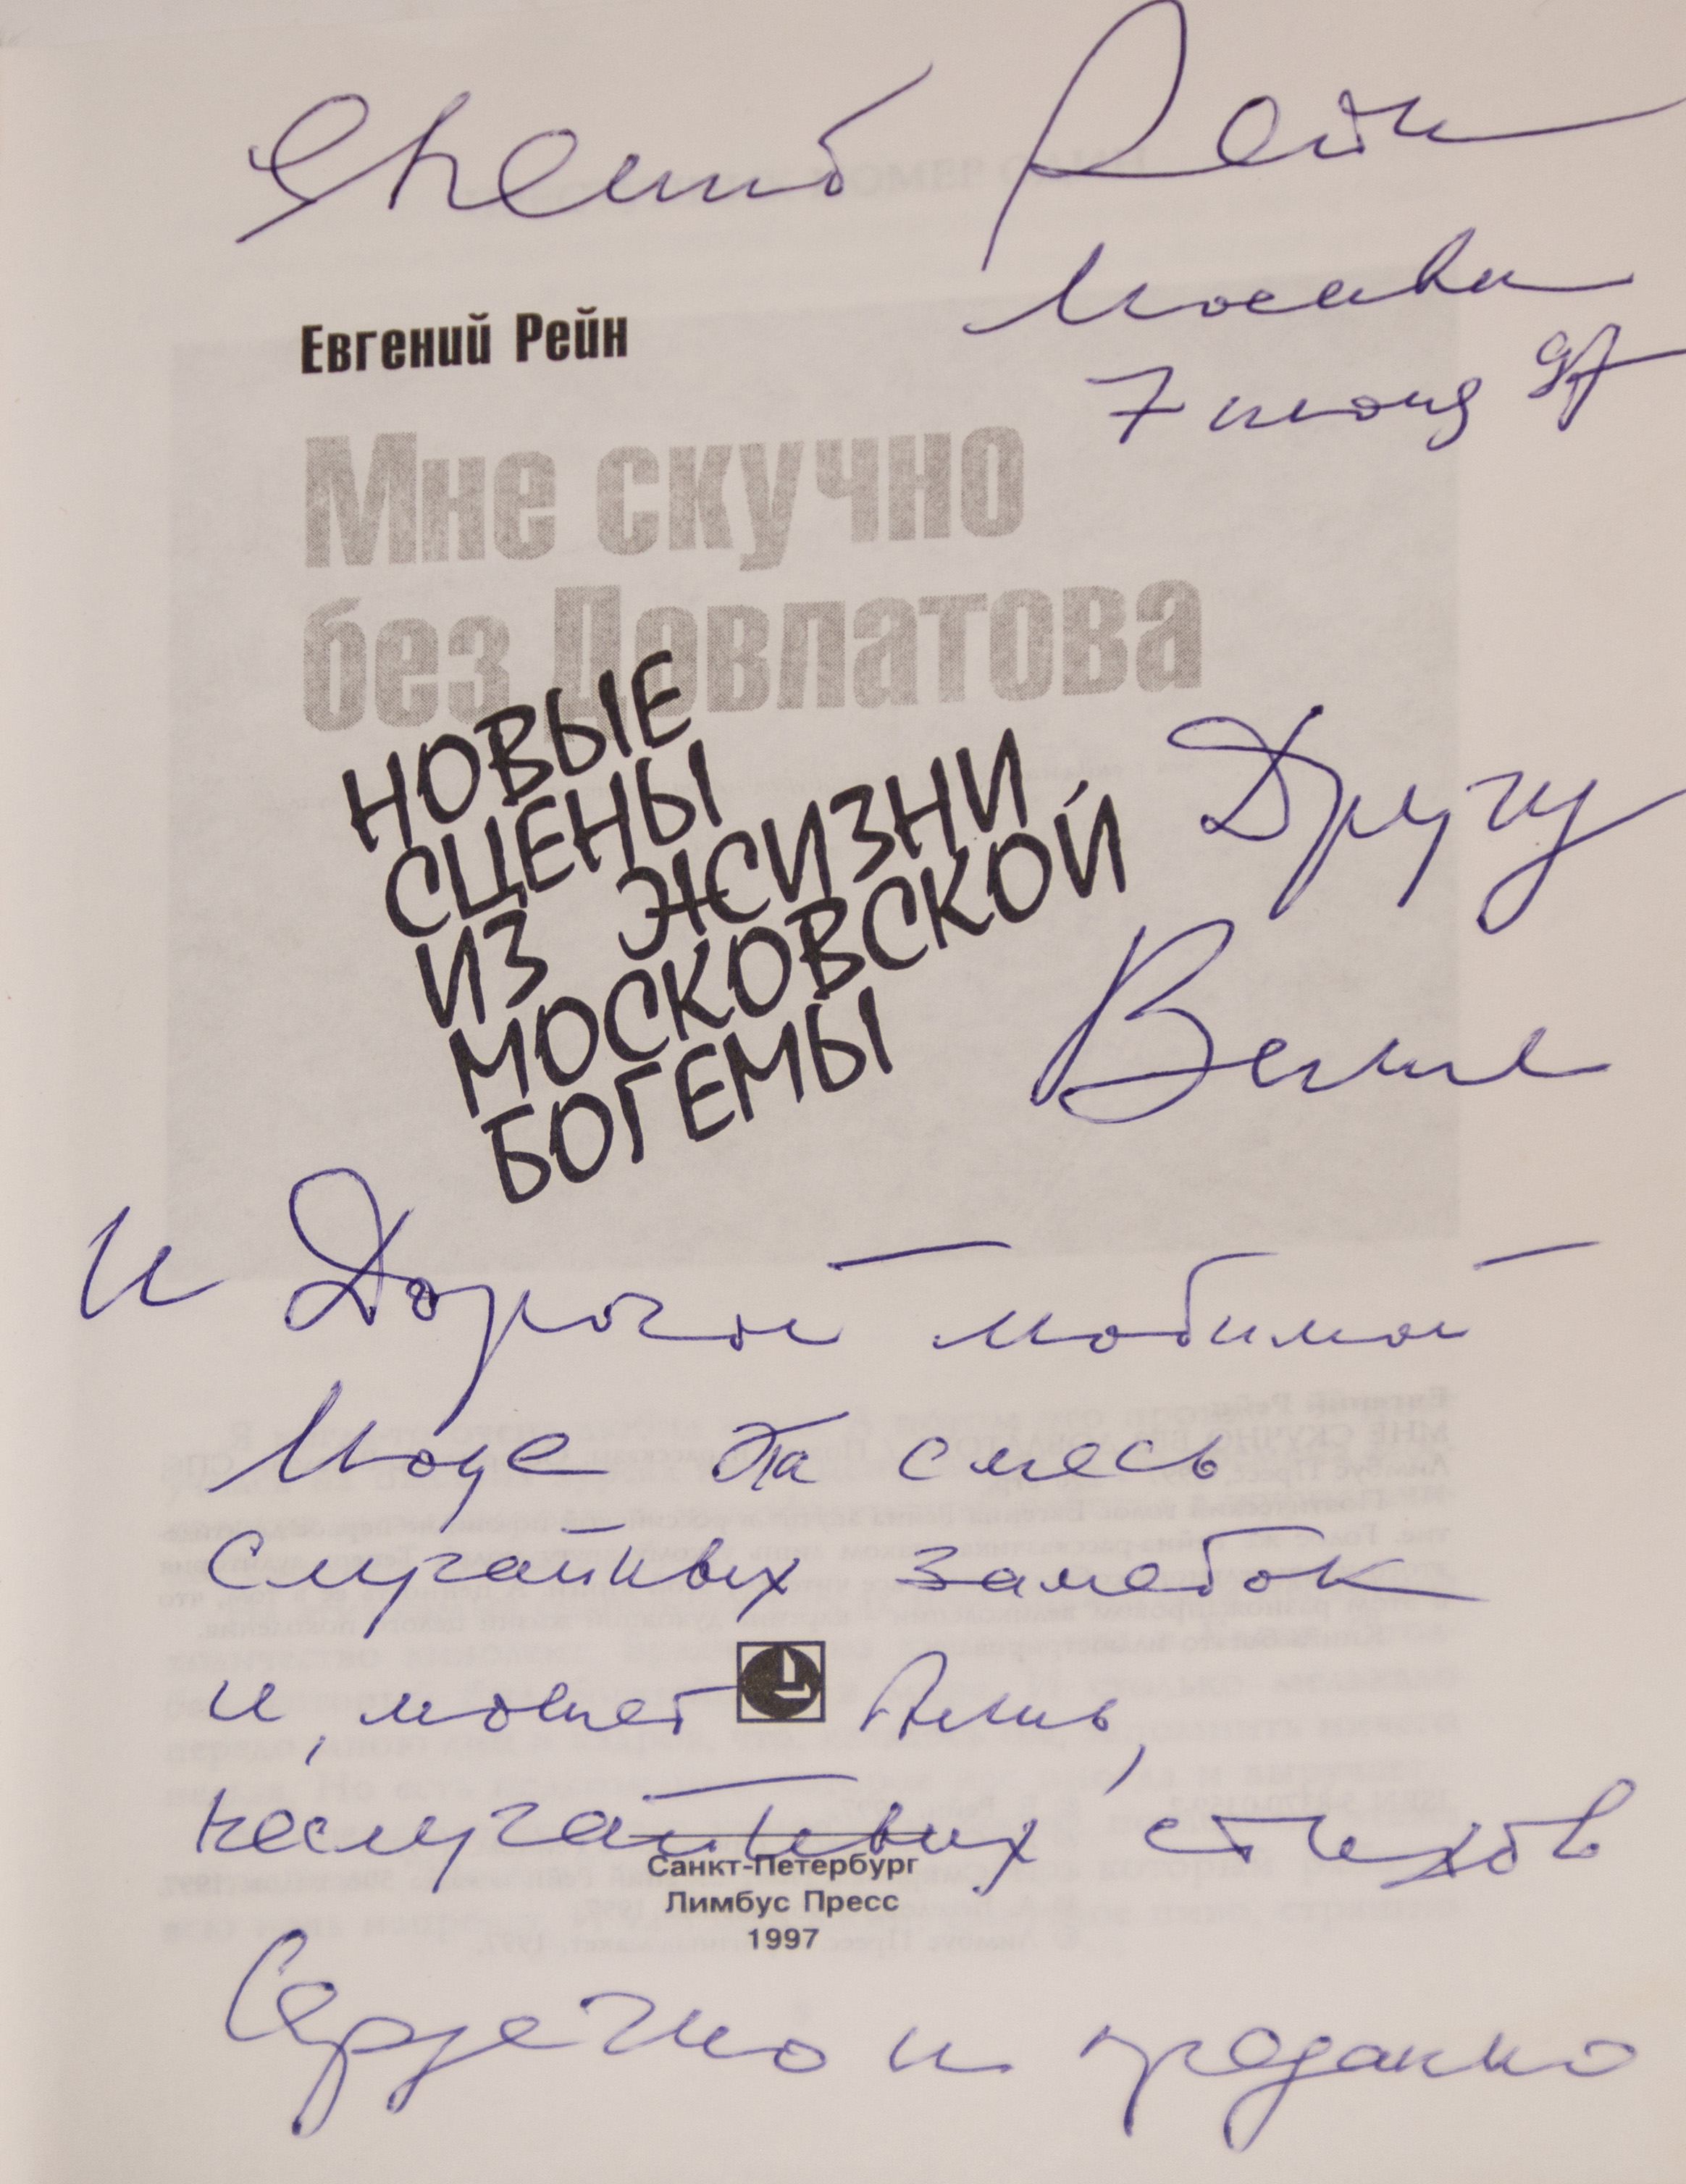 Евгений Рейн
Москва
7 июня 97
Евгений Рейн
Мне скучно
без Довлатова
НОВЫЕ
СЦЕНЫ
ИЗ ЖИЗНИ
МОСКОВСКОЙ
БОГЕМЫ
Другу
Вене
и Дорогой любимой
эта смесь
случайных заметок
и, может быть,
неслучайных стихов
Санкт-Петербург
Лимбус Пресс
1997
Сердечно и преданно